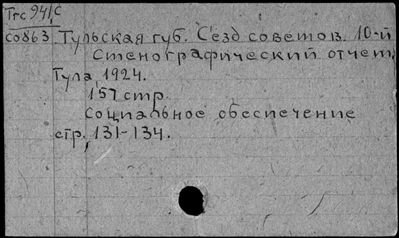 Тгс 94/С
со863 Тульская губ. Сезд советов. 10-й
Стенографический отчет.
Тула 1924.
157 стр.
Социальное обеспечение
стр. 131-134.